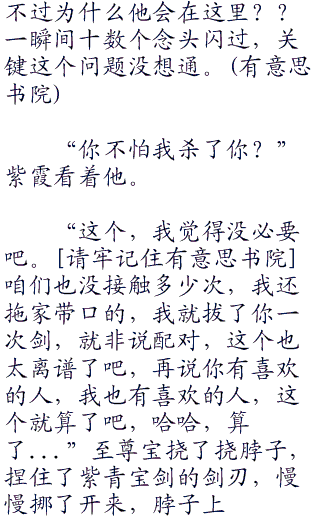 不过为什么他会在这里？？
一瞬间十数个念头闪过，关
键这个问题没想通。(有意思
书院)
“你不怕我杀了你？”
紫霞看着他。
“这个，我觉得没必要
吧。[请牢记住有意思书院]
咱们也没接触多少次，我还
拖家带口的，我就拔了你一
次剑，就非说配对，这个也
太离谱了吧，再说你有喜欢
的人，我也有喜欢的人，这
个就算了吧，哈哈，算
了...”至尊宝挠了挠脖子，
捏住了紫青宝剑的剑刃，慢
慢挪了开来，脖子上